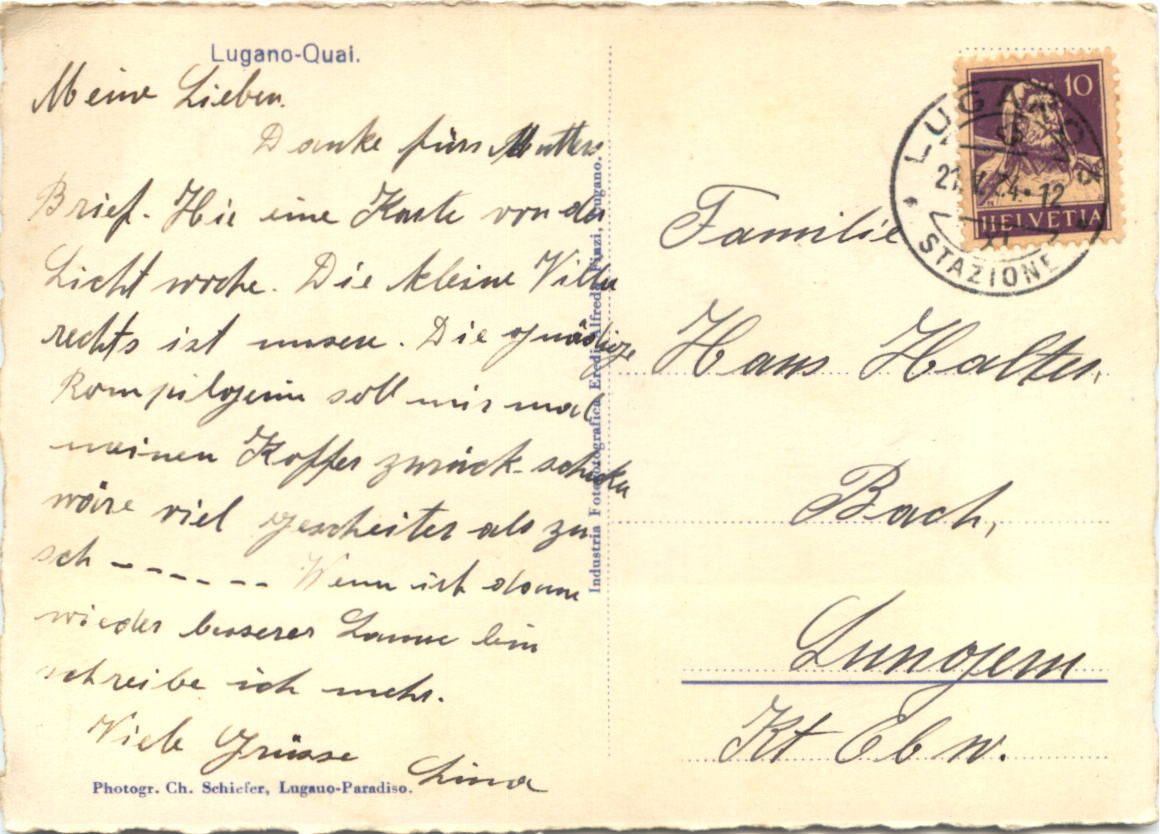 Lugano-Quai.
Meine Lieben.
Danke fürs Mutters
Brief. Hie eine Karte von der
Lichtwoche. Die kleine Villa
rechts ist unsere. Die gnädige
soll mir mal
meinen Koffer zurück-schicken
wäre viel gescheiter als zu
sch ------- Wenn ich dann
wieder besserer Laune bin
schreibe ich mehr.
Viele Grüsse
Lina
Photogr. Ch. Schiefer, Lugano-Paradiso.
Industria Fotofotografica Eredi Alfredo Finzi, Lugano.
10
HELVETIA
LUGANO
24.12
STAZIONE
Familie
Hans Halter,
Bach,
Lungern
Kt Obw.